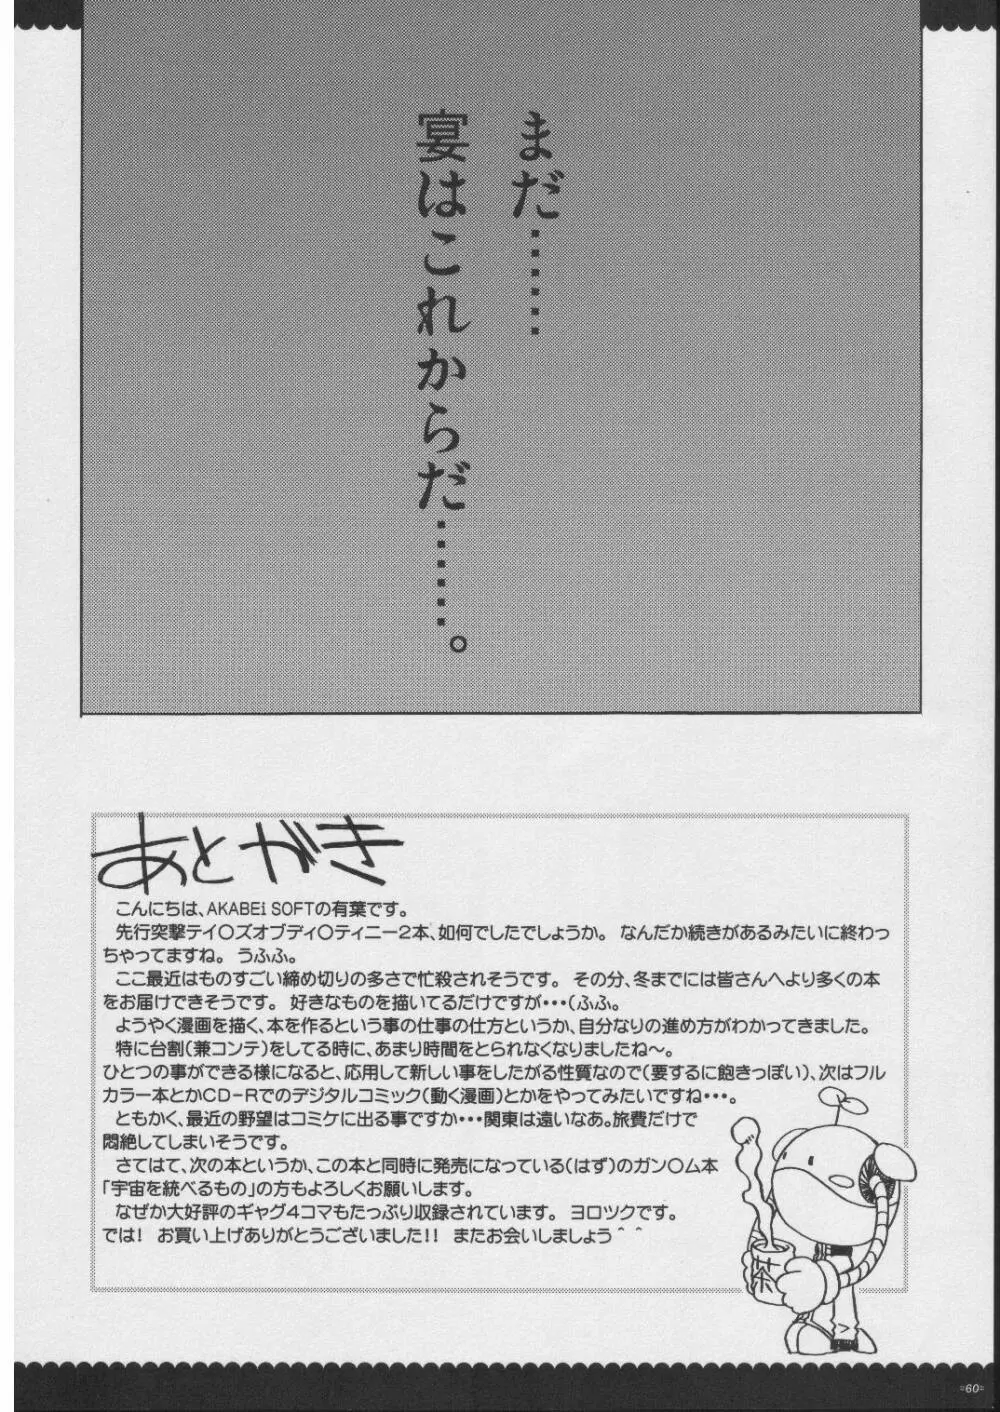 まだ・・・・・・
宴はこれからだ・・・・・・。
あとがき
こんにちは、AKABEi SOFTの有葉です。
先行突撃テイ○ズオブディ○ティニー2本、如何でしたでしょうか。 なんだか続きがあるみたいに終わっ
ちゃってますね。 うふふ。
ここ最近はものすごい締め切りの多さで忙殺されそうです。 その分、冬までには皆さんへより多くの本
をお届けできそうです。 好きなものを描いてるだけですが・・・(ふふ。
ようやく漫画を描く、本を作るという事の仕事の仕方というか、自分なりの進め方がわかってきました。
特に台割(兼コンテ)をしてる時に、あまり時間をとられなくなりましたね〜。
ひとつの事ができる様になると、応用して新しい事をしたがる性質なので(要するに飽きっぽい)、次はフル
カラー本とかCD-Rでのデジタルコミック(動く漫画)とかをやってみたいですね・・・。
ともかく、最近の野望はコミケに出る事ですか・・・関東は遠いなあ。旅費だけで
悶絶してしまいそうです。
さてはて、次の本というか、この本と同時に発売になっている(はず)のガン○ム本
「宇宙を統べるもの」の方もよろしくお願いします。
なぜか大好評のギャグ4コマもたっぷり収録されています。 ヨロツクです。
では! お買い上げありがとうございました!! またお会いしましょう＾＾
茶
=60=